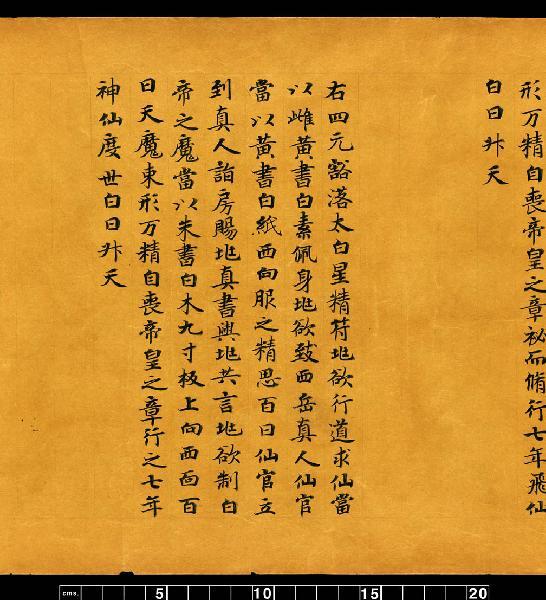 形万精自喪帝皇之章祕而脩行七年飛仙
白日升天
右四元豁落太白星精符地欲行道求仙當
以雌黃書白素佩身地欲致西岳真人仙官
當以黃書白紙西向服之精思百日仙官立
到真人詣房賜地真書與地共言地欲制白
帝之魔當以朱書白木九寸板上向西面百
日天魔束形万精自喪帝皇之章行之七年
神仙度世白日升天
cms. 5 10 15 20